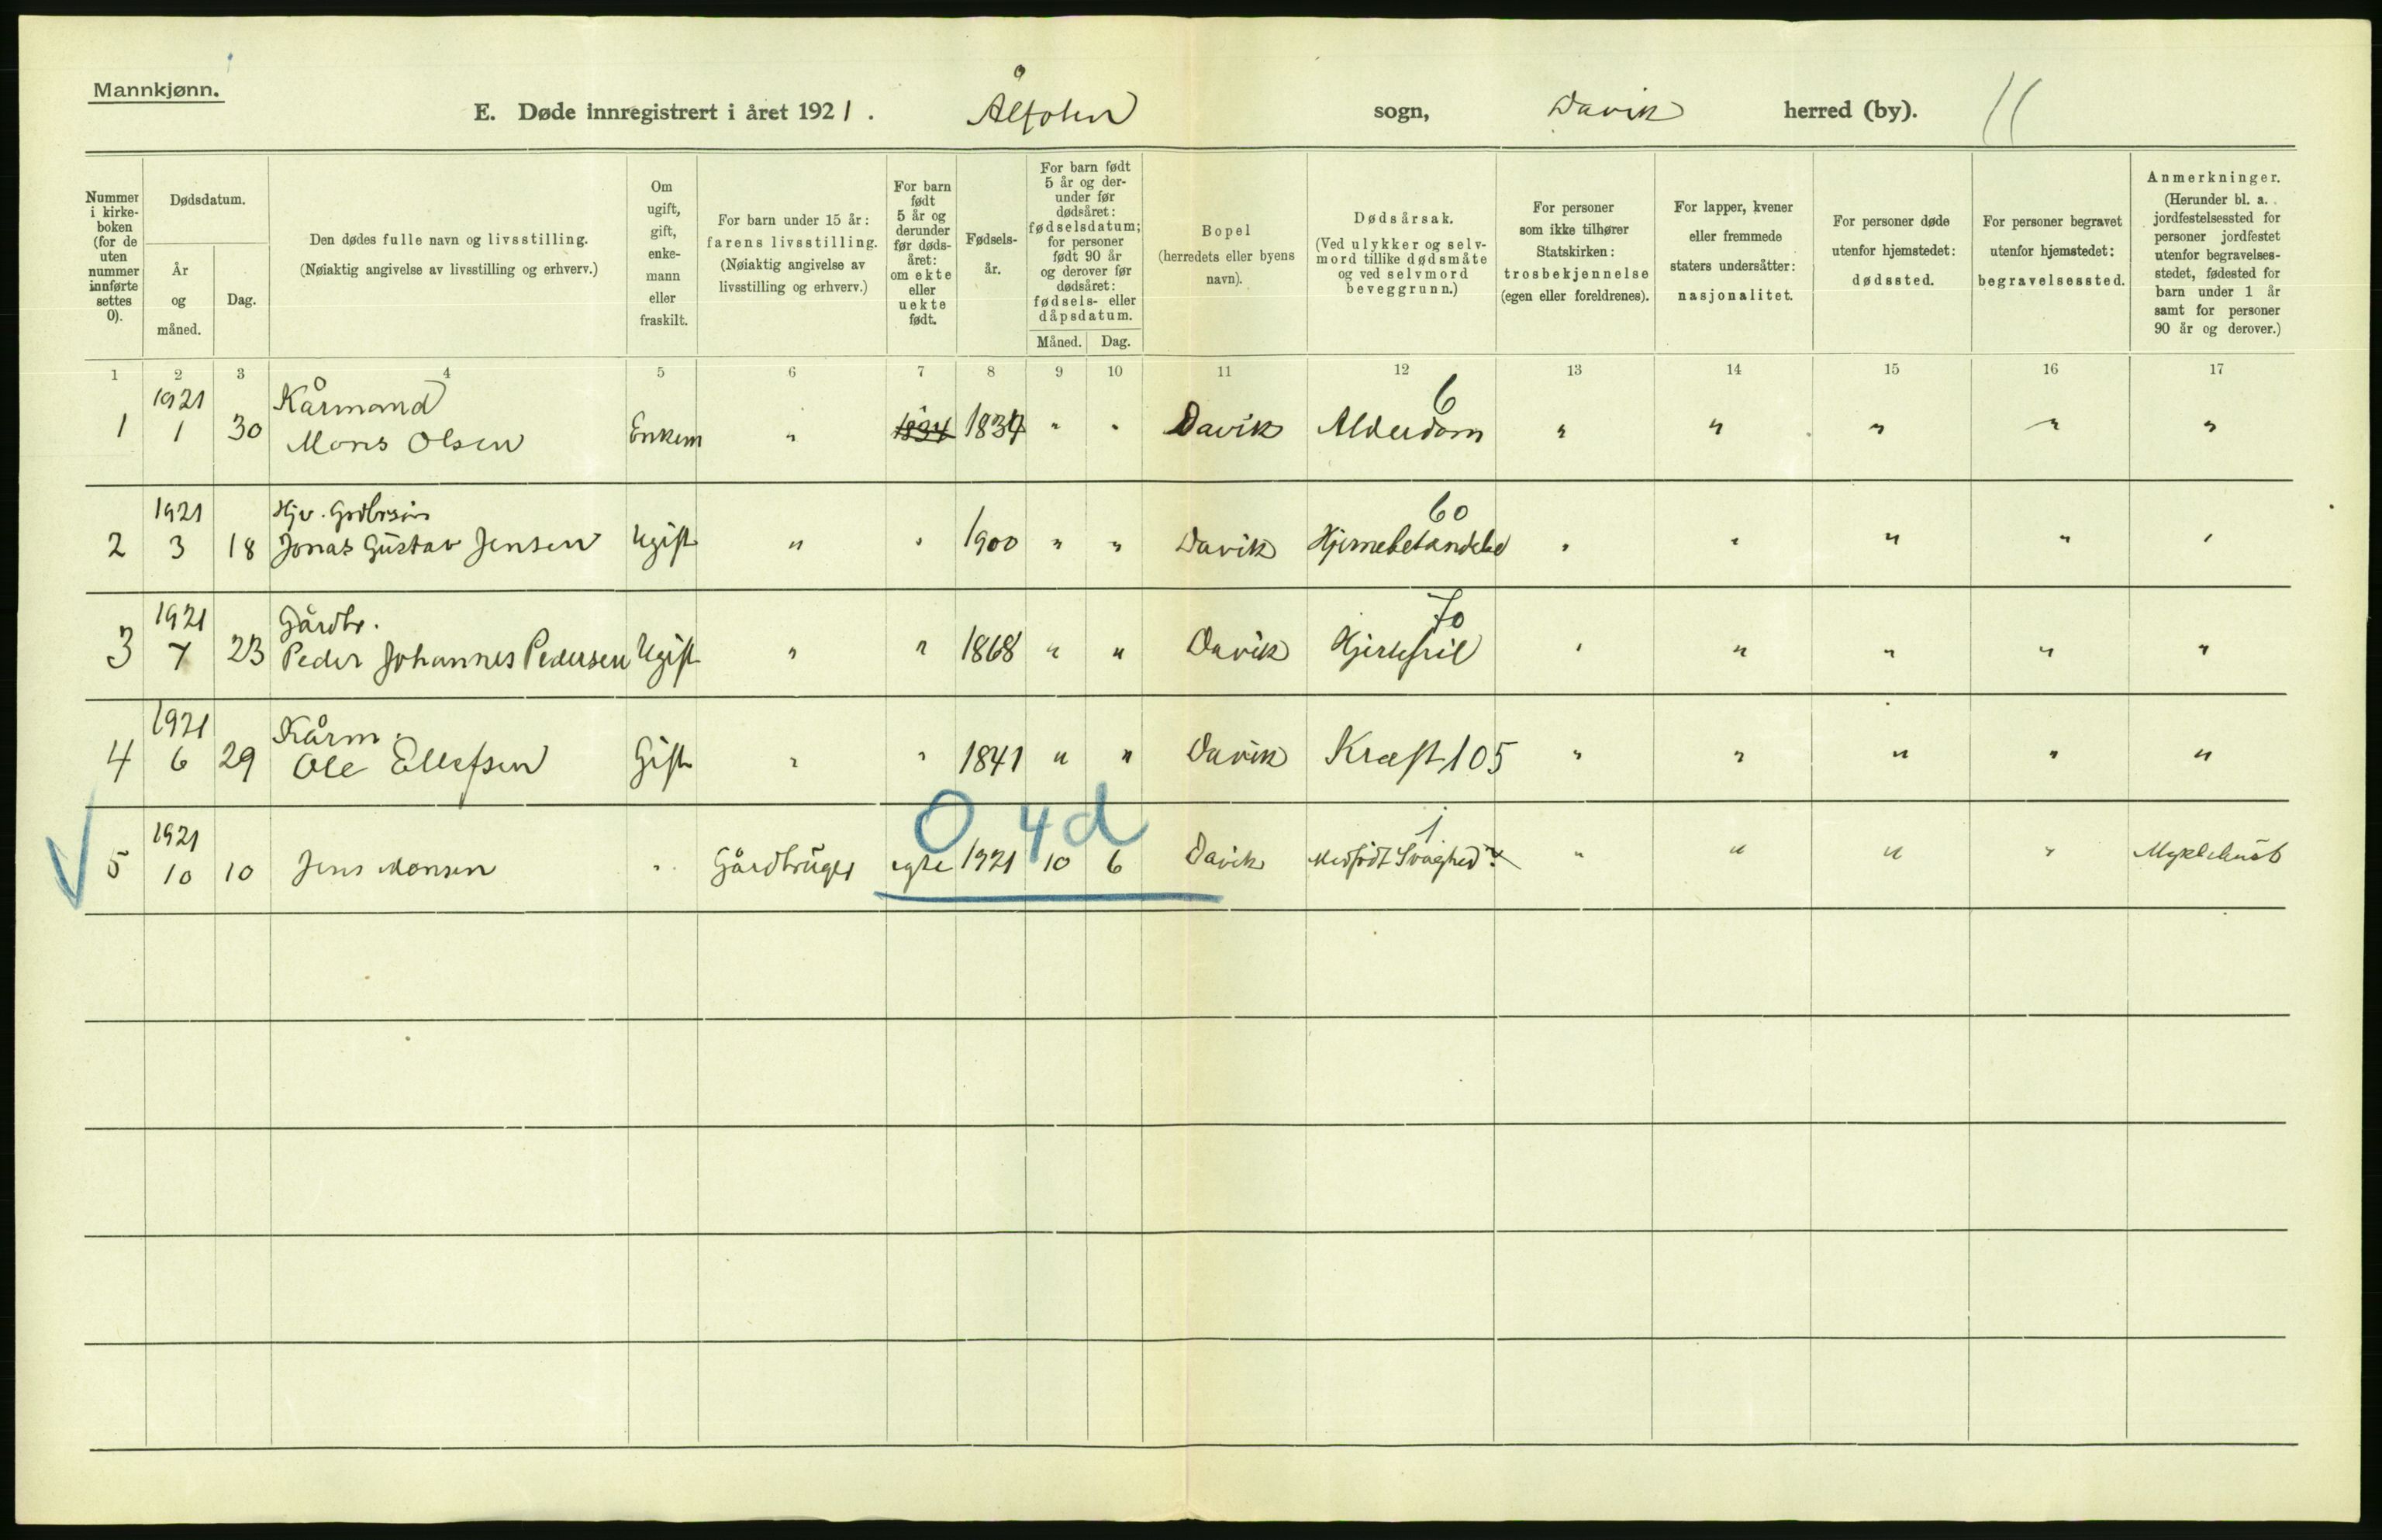 Mannkjønn.
E. Døde innregistrert i året 1921. Ålfoten sogn, Davik herred (by). 11
Nummer i kirkeboken (for de uten nummer innførte settes 0).
Dødsdatum.
År og måned.
Dag.
Den dødes fulle navn og livsstilling.
(Nøiaktig angivelse av livsstilling og erhverv.)
Om ugift, gift, enkemann eller fraskilt.
For barn under 15 år: farens livsstilling.
(Nøiaktig angivelse av livsstilling og erhverv.)
For barn født 5 år og derunder før dødsåret: om ekte eller uekte født.
Fødselsår.
For barn født 5 år og derunder før dødsåret: fødselsdatum; for personer født 90 år og derover før dødsåret: fødsels- eller dåpsdatum.
Måned. Dag.
Bopel
(herredets eller byens navn).
Dødsårsak.
(Ved ulykker og selvmord tillike dødsmåte og ved selvmord beveggrunn.)
For personer som ikke tilhører Statskirken: trosbekjennelse (egen eller foreldrenes).
For lapper, kvener eller fremmede staters undersåtter: nasjonalitet.
For personer døde utenfor hjemstedet: dødssted.
For personer begravet utenfor hjemstedet: begravelsessted.
Anmerkninger.
(Herunder bl. a. jordfestelsessted for personer jordfestet utenfor begravelsesstedet, fødested for barn under 1 år samt for personer 90 år og derover.)
1 2 3 4 5 6 7 8 9 10 11 12 13 14 15 16 17
1921 Kårmand 6
1 1 30 Mons Olsen Enkem " 1834 1834 " " Davik Alderdom " " " " "
1921 Hjv. Grdbrsøn 60
2 3 18 Jonas Gustav Jensen Ugift " " 1900 " " Davik Hjernebetændelse " " " " "
1921 Gårdbr. 70
3 7 23 Peder Johannes Pedersen Ugift " " 1868 " " Davik Hjertefeil " " " " "
1921 Kårm.
4 6 29 Ole Ellefsen Gift " " 1841 " " Davik Kræft 105 " " " " "
0 4d
1921 1
5 10 10 Jens Monsen " Gårdbruger egte 1921 10 6 Davik Medfødt Svaghed " " " " Myklebust